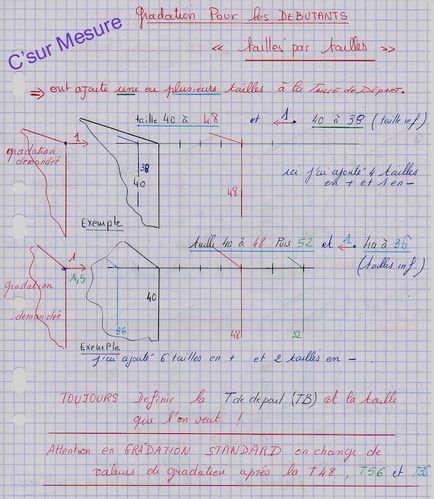 Gradation Pour les DEBUTANTS
C'sur Mesure
« tailles par tailles »
⇒ ont ajoute une ou plusieurs tailles à la Taille de Départ.
taille 40 à 48 et 1. 40 à 38 (taille inf)
1
gradation demandée
38
40
48
ici j'ai ajouté 4 tailles
en + et 1 en -
Exemple
taille 40 à 48 Puis 52 et 1. 40 à 36
(tailles inf)
1
1,5
gradation
demandée
40
36
48
52
Exemple
j'ai ajouté 6 tailles en + et 2 tailles en -.
TOUJOURS Definir la T de depart (TB) et la taille
que l'on veut !
Attention en GRADATION STANDARD on change de
valeurs de gradation après la T48, T56 et T36